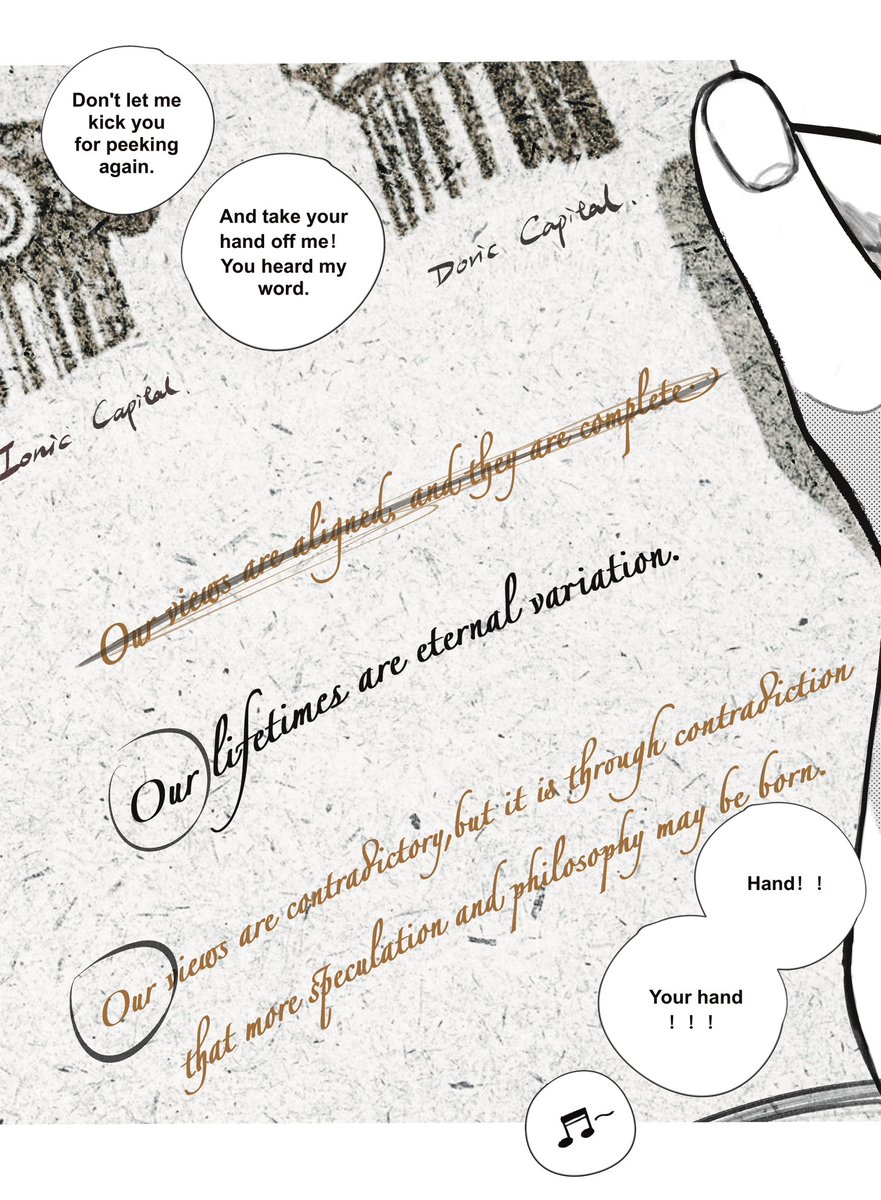 Don't let me
kick you
for peeking
again.
And take your
hand off me!
You heard my
word.
Doric Capital..
Ionic Capital.
Our views are aligned, and they are complete.
Our lifetimes are eternal variation.
Our views are contradictory, but it is through contradiction
that more speculation and philosophy may be born.
Hand! !
Your hand
! ! !